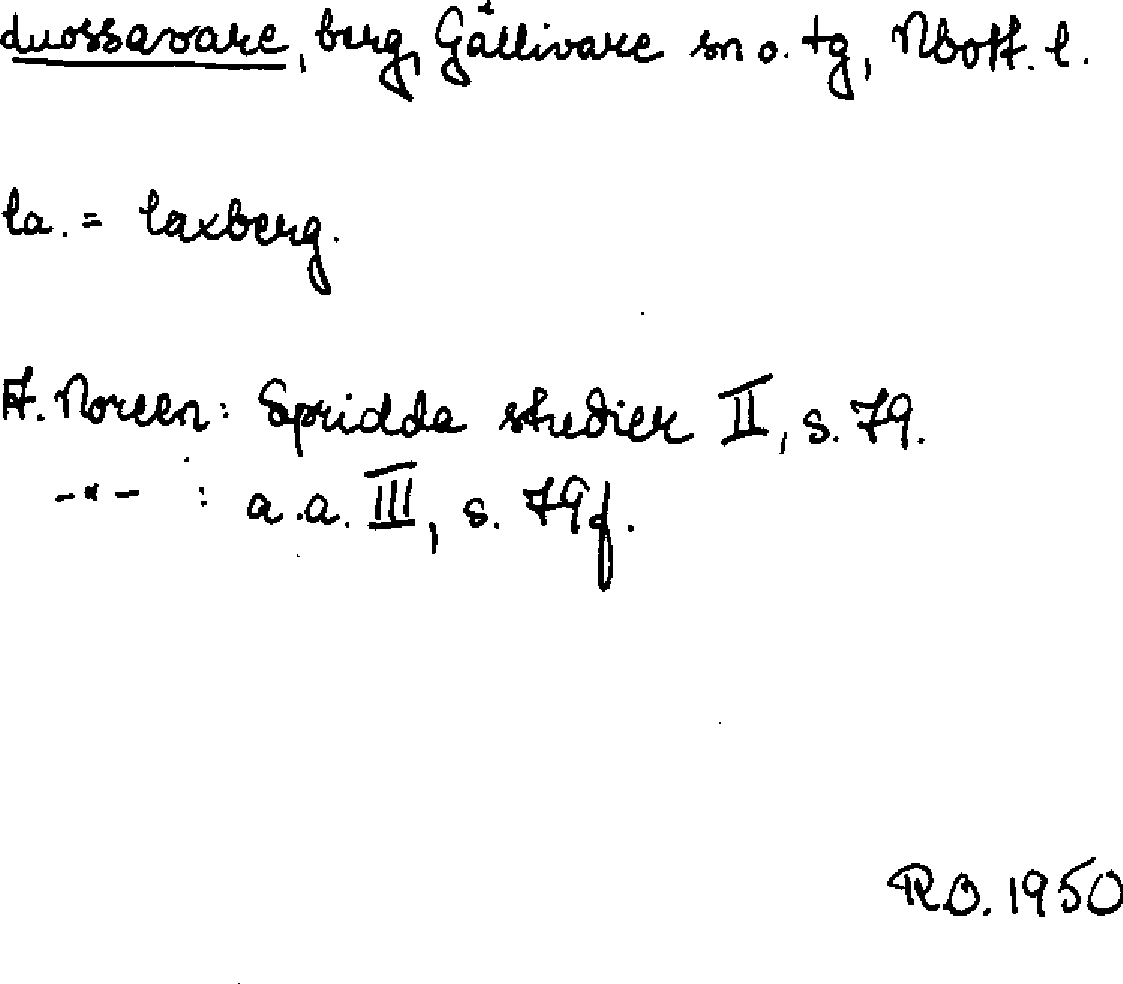 duossavare, berg, Gällivare sn o. tg, Nbott. l.
la. = laxberg.
A. Noreen: Spridda studier II, s. 79.
-"- : a.a. III, s. 79f.
R.B. 1950